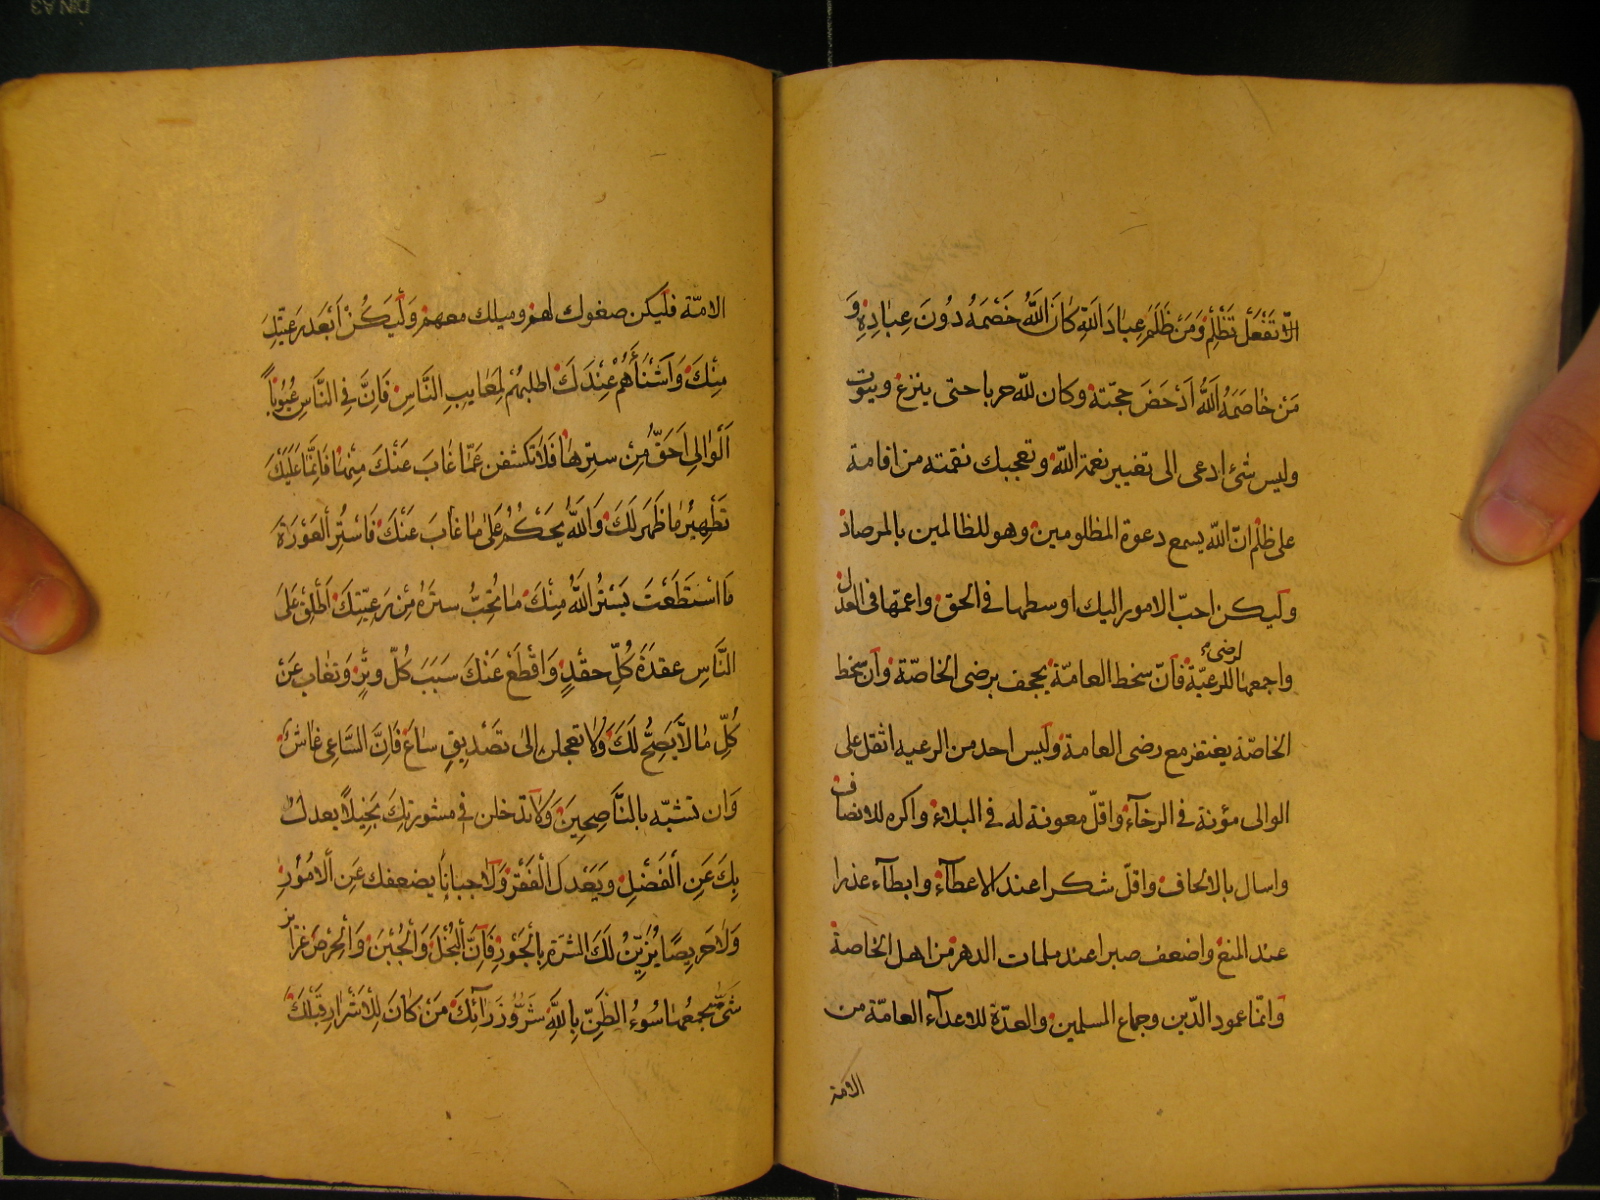 الّا تَفْعَلْ تَظْلِمْ وَمَنْ ظَلَمَ عِبَادَ اللَّهِ كَانَ اللَّهُ خَصْمَهُ دُونَ عِبَادِهِ وَ
مَنْ خَاصَمَهُ اللَّهُ اَدْحَضَ حجّته وكان للّه حربا حتى ينزع ويتوب
وليس شئ ادعى الى تغيير نعمة اللّه وتعجيل نقمته من اقامة
على ظلم انّ اللّه يسمع دعوة المظلومين وهو للظالمين بالمرصاد
وليكن احبّ الامور اليك اوسطها فى الحق واعمّها فى العدل
واجمعها للرعيّة فانّ سخط العامّة يجحف برضى الخاصّة وانّ سخط
لرضى
الخاصّة يغتفر مع رضى العامة وليس احد من الرعيه اثقل على
الوالى مؤنة فى الرخآء واقلّ معونة له فى البلاء واكره للانصاف
واسال بالالحاف واقلّ شكرا عند الاعطآء وابطآء عذرا
عند المنع واضعف صبرا عند ملمات الدهر من اهل الخاصة
وانّما عمود الدّين وجماع المسلمين والعدّة للاعدآء العامّة من
الامة
الامّة فليكن صغوك لهم وميلك معهم وَلْيَكُنْ اَبْعَدَ رَعِيَّتِكَ
مِنْكَ وَاَشْنَأُهُمْ عِنْدَكَ اطلبهُمْ لِمَعَايِبِ النَّاسِ فَاِنَّ فِى النَّاسِ عُيُوْبًا
اَلْوَالِى اَحَقُّ مِنْ سترهَا فَلَا تكشفن عَمّا غَابَ عَنْكَ مِنْهَا فَاِنَّمَا عَلَيْكَ
تَطْهِيْرُ مَا ظَهَرَ لَكَ وَاللَّهُ يَحْكُمُ عَلَى مَا غَابَ عَنْكَ فَاسْتُرِ الْعَوْرَةَ
مَا اسْتَطَعْتَ يَسْتُرُ اللَّهُ مِنْكَ مَا تُحِبُّ سترَهُ مِنْ رَعِيَّتِكَ اَطْلِقْ عَلَى
النَّاسِ عقدَةَ كُلِّ حقْدٍ وَاقْطَعْ عَنْكَ سَبَبَ كُلِّ وِتْرٍ وَتغَاب عَنْ
كُلِّ مَا لَا يَصِحُّ لَكَ وَلَا تعجلن اِلَى تَصْدِيقِ سَاعٍ فَاِنَّ السَّاعِى غَاشٌّ
وَان تشبّه بالنَّاصِحِيْنَ وَلَا تدخلن فِى مشورتِكَ بَخِيْلًا يعدل
بِكَ عَنِ الْفَضْلِ وَيَعْدكَ الْفَقْرَ وَلَا جبانًا يضعفك عَنِ الْاُمُوْرِ
وَلَا حَرِيصًا يُزَيِّنُ لَكَ الشَّرَهَ بِالْجَوْرِ فَاِنَّ الْبُخْلَ وَالْجُبْنَ وَالْحِرْصَ غرَائز
شَتَّى يجمعُهَا سُوءُ الظَّنِّ بِاللَّهِ شَرُّ وُزَرَآئِكَ مَنْ كَانَ لِلْاَشْرَارِ قَبْلَكَ